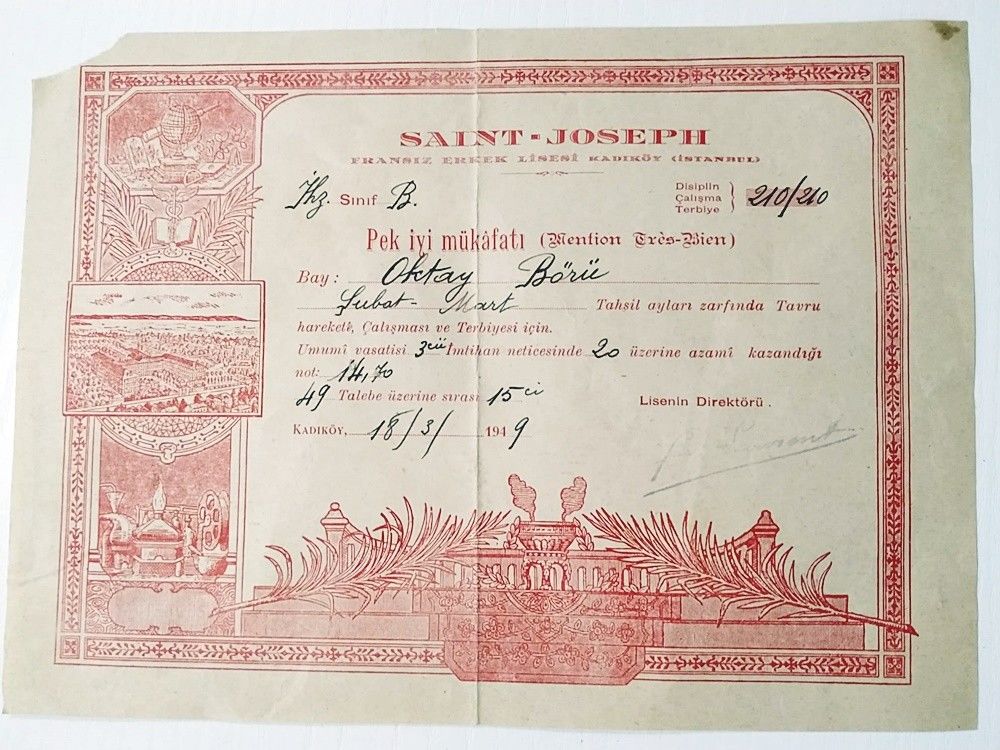 SAINT-JOSEPH
FRANSIZ ERKEK LİSESİ KADIKÖY (İSTANBUL)
İhz. Sınıf B.
Disiplin
Çalışma
Terbiye } 210/210
Pek iyi mükâfatı (Mention Très-Bien)
Bay: Oktay Börü
Şubat - Mart Tahsil ayları zarfında Tavru
hareketi, Çalışması ve Terbiyesi için.
Umumî vasatisi 3cü İmtihan neticesinde 20 üzerine azamî kazandığı
not: 14,70
49 Talebe üzerine sırası 15ci
Lisenin Direktörü.
KADIKÖY, 18/3/ 1949